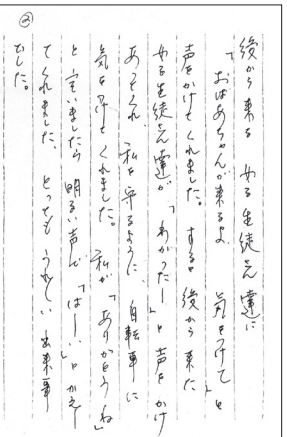 ②
後から来る女子生徒さん達に
「おばあちゃんが来るよ 気をつけて」と
声をかけてくれました。すると後から来た
女子生徒さん達が「わかったー」と声をかけ
あってくれ 私を守るように、自転車に
気を付けてくれました。私が「ありがとうね」
と言いましたら明るい声で「はーい」とかえし
てくれました、とってもうれしい出来事
でした。